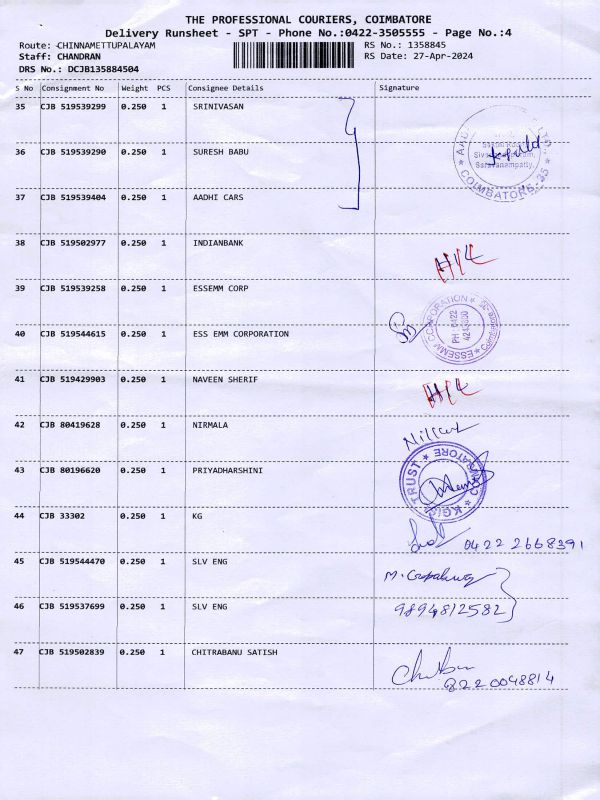 THE PROFESSIONAL COURIERS, COIMBATORE
Delivery Runsheet - SPT - Phone No.:0422-3505555 - Page No.:4
Route: CHINNAMETTUPALAYAM RS No.: 1358845
Staff: CHANDRAN RS Date: 27-Apr-2024
DRS No.: DCJB135884504
S No Consignment No Weight PCS Consignee Details Signature
35 CJB 519539299 0.250 1 SRINIVASAN
36 CJB 519539290 0.250 1 SURESH BABU
Saravanampatty,
COIMBATORE-35
37 CJB 519539404 0.250 1 AADHI CARS
38 CJB 519502977 0.250 1 INDIANBANK
H/L
39 CJB 519539258 0.250 1 ESSEMM CORP
ESSEMM CORPORATION
PH 0422
40 CJB 519544615 0.250 1 ESS EMM CORPORATION
41 CJB 519429903 0.250 1 NAVEEN SHERIF
H/L
42 CJB 80419628 0.250 1 NIRMALA
43 CJB 80196620 0.250 1 PRIYADHARSHINI
TRUST
44 CJB 33302 0.250 1 KG
0422 2668391
45 CJB 519544470 0.250 1 SLV ENG
46 CJB 519537699 0.250 1 SLV ENG
9894812582
47 CJB 519502839 0.250 1 CHITRABANU SATISH
8220048814